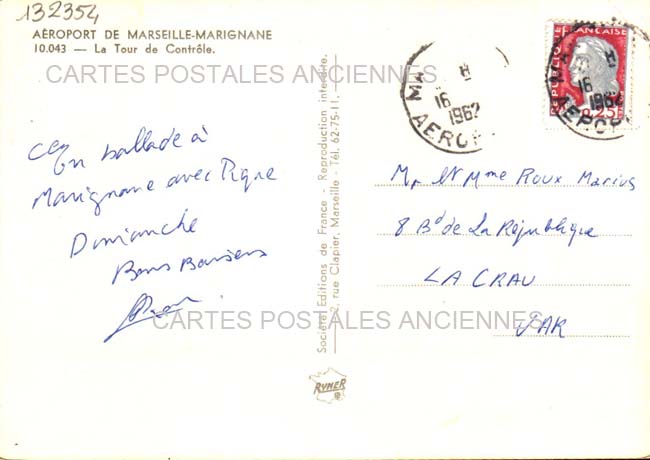 132354
AÉROPORT DE MARSEILLE-MARIGNANE
10.043 — La Tour de Contrôle.
CARTES POSTALES ANCIENNES
En ballade à
Marignane avec
Dimanche
Bons Baisers
Société Editions de France - Reproduction interdite.
2, rue Clapier, Marseille - Tél. 62-75-11.
RYNER
RÉPUBLIQUE FRANÇAISE
0,25
16
1962
AEROP
16
1962
AEROP
Mr et Mme Roux Marius
8 Bd de La République
LA CRAU
VAR
CARTES POSTALES ANCIENNES